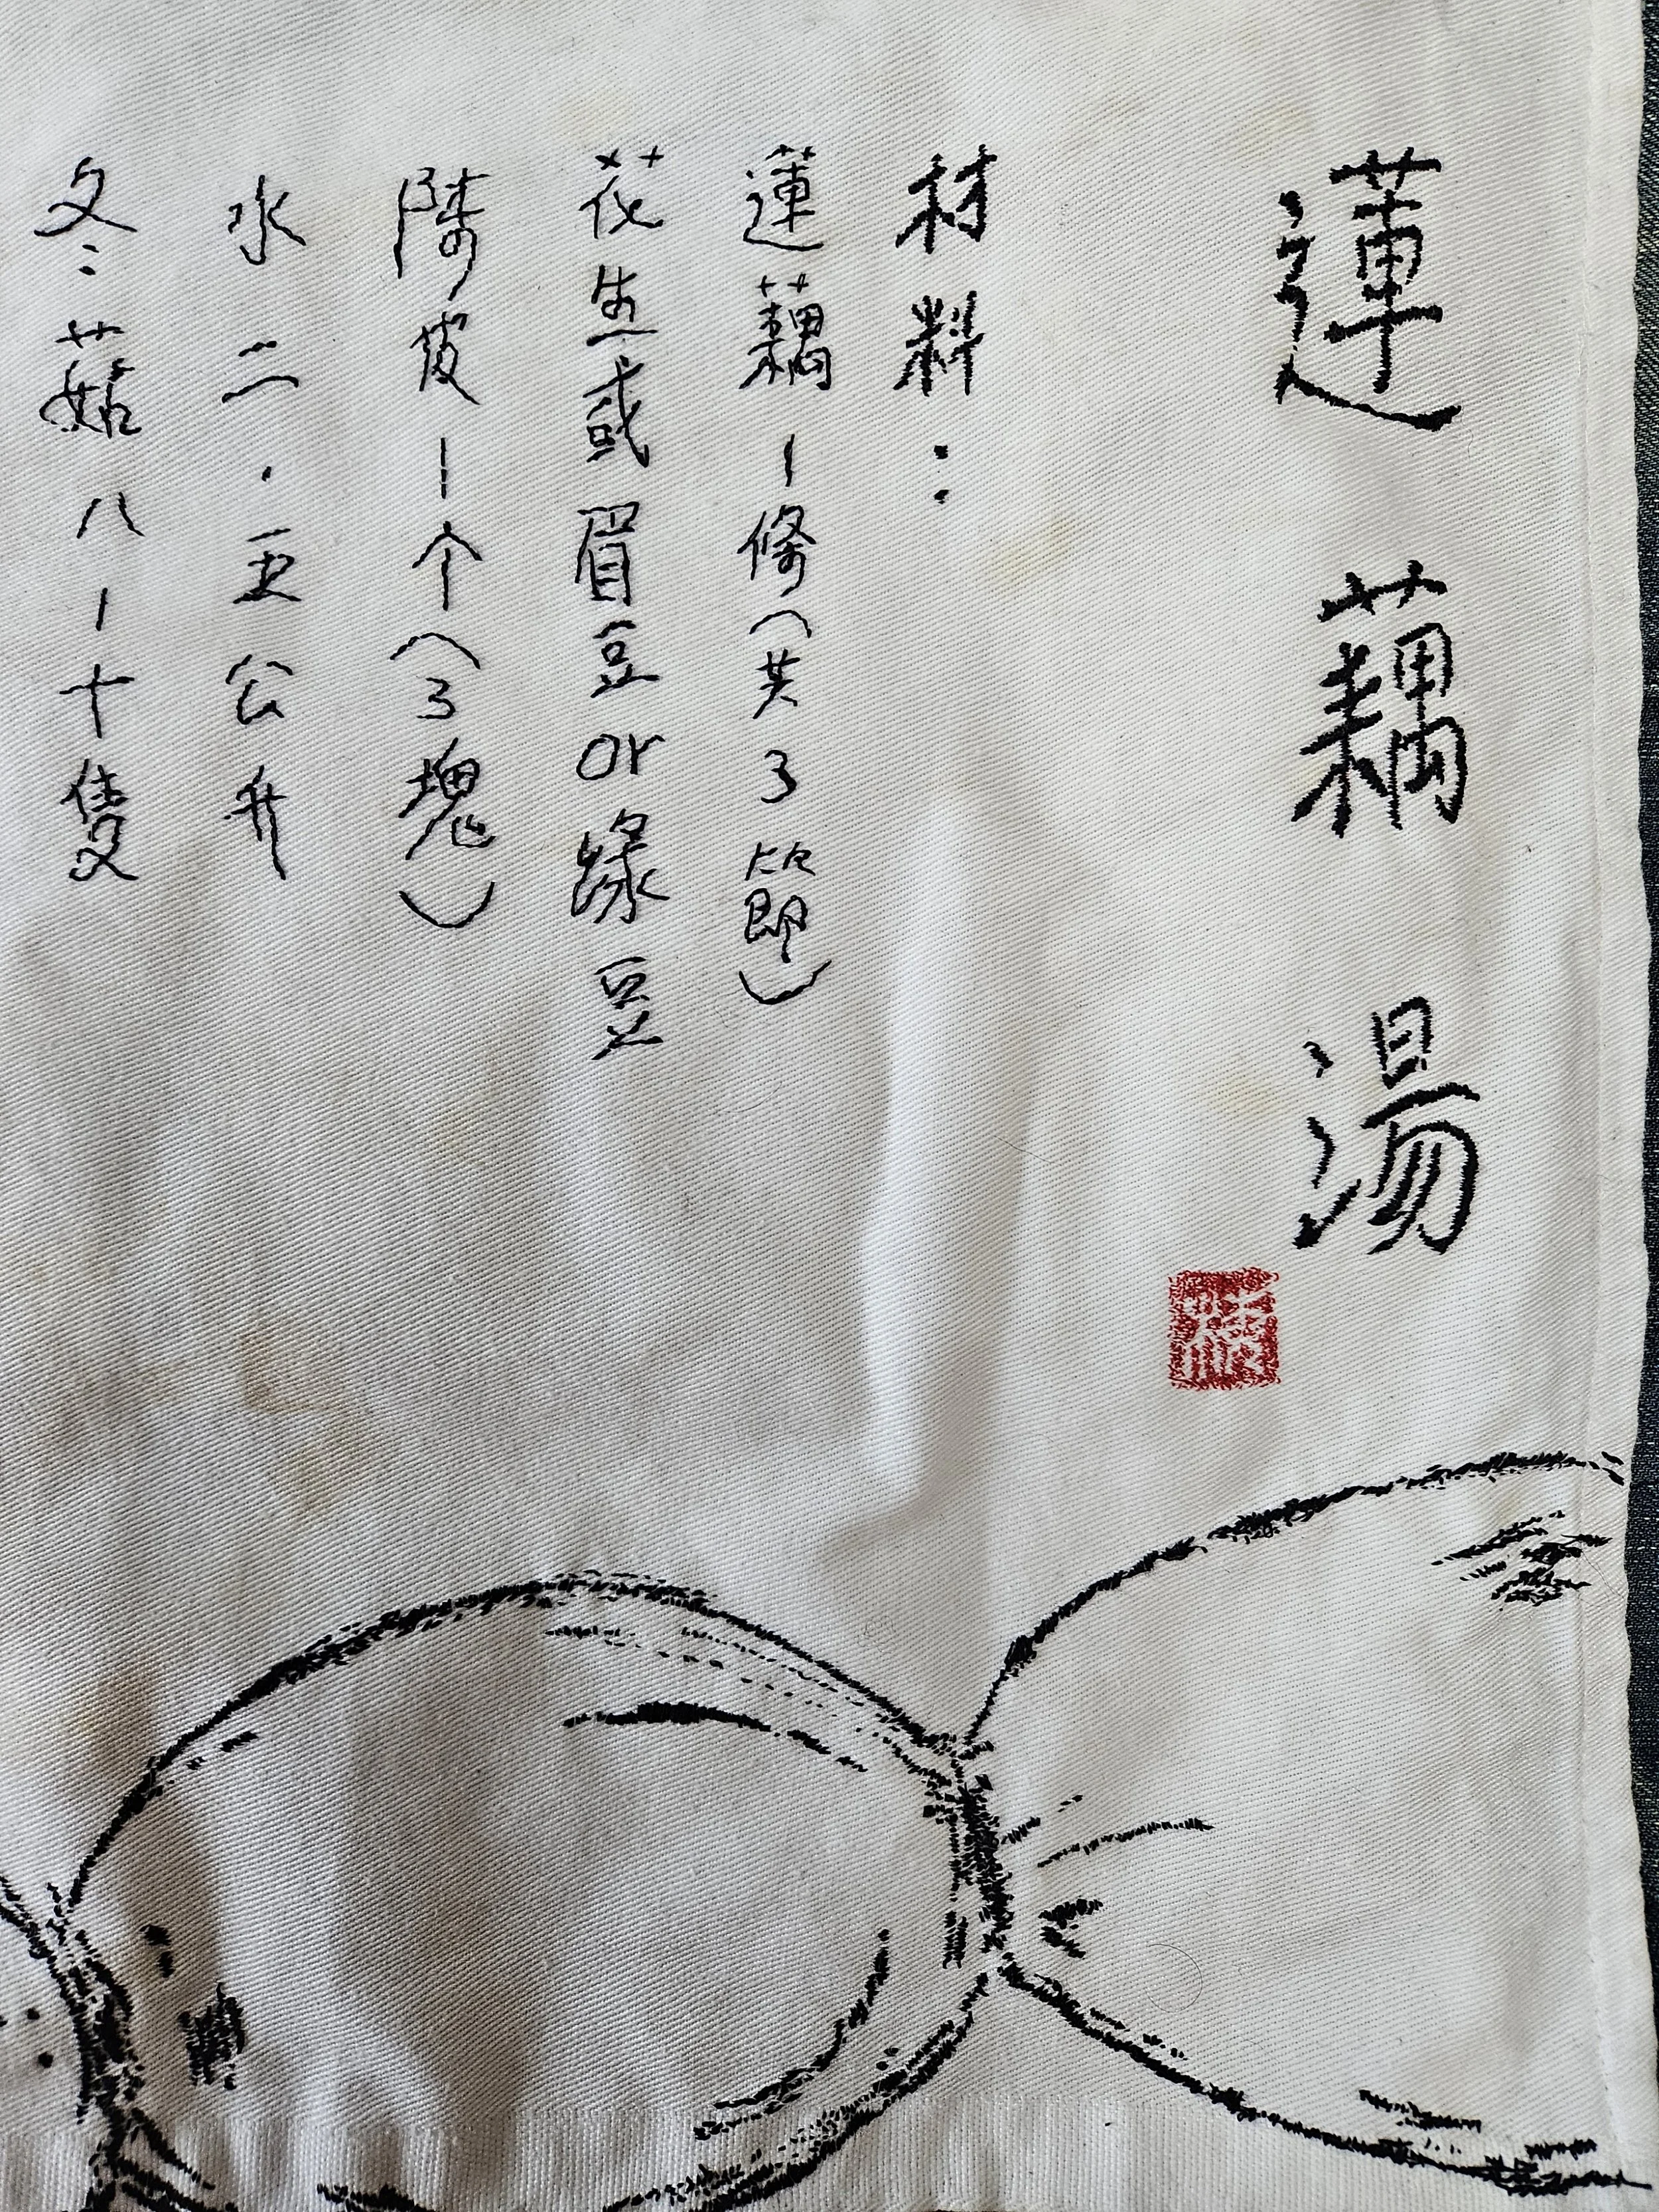 蓮藕湯
材料：
蓮藕一條（共3節）
花生或眉豆or綠豆
陳皮一个（3塊）
水二．五公升
冬菇八一十隻